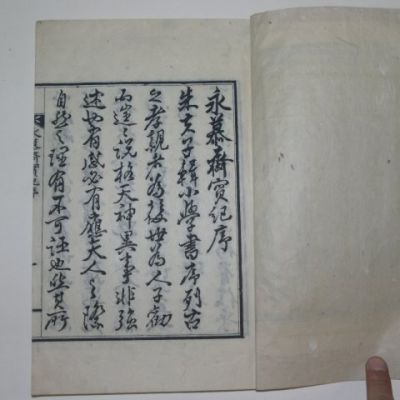 永慕齋實紀序
朱夫子輯小學書序列古
之孝親者為後世為人子勸
而遂之說格天神異事非強
述也有感必有應天人之際
自然之理有不可誣也然其所